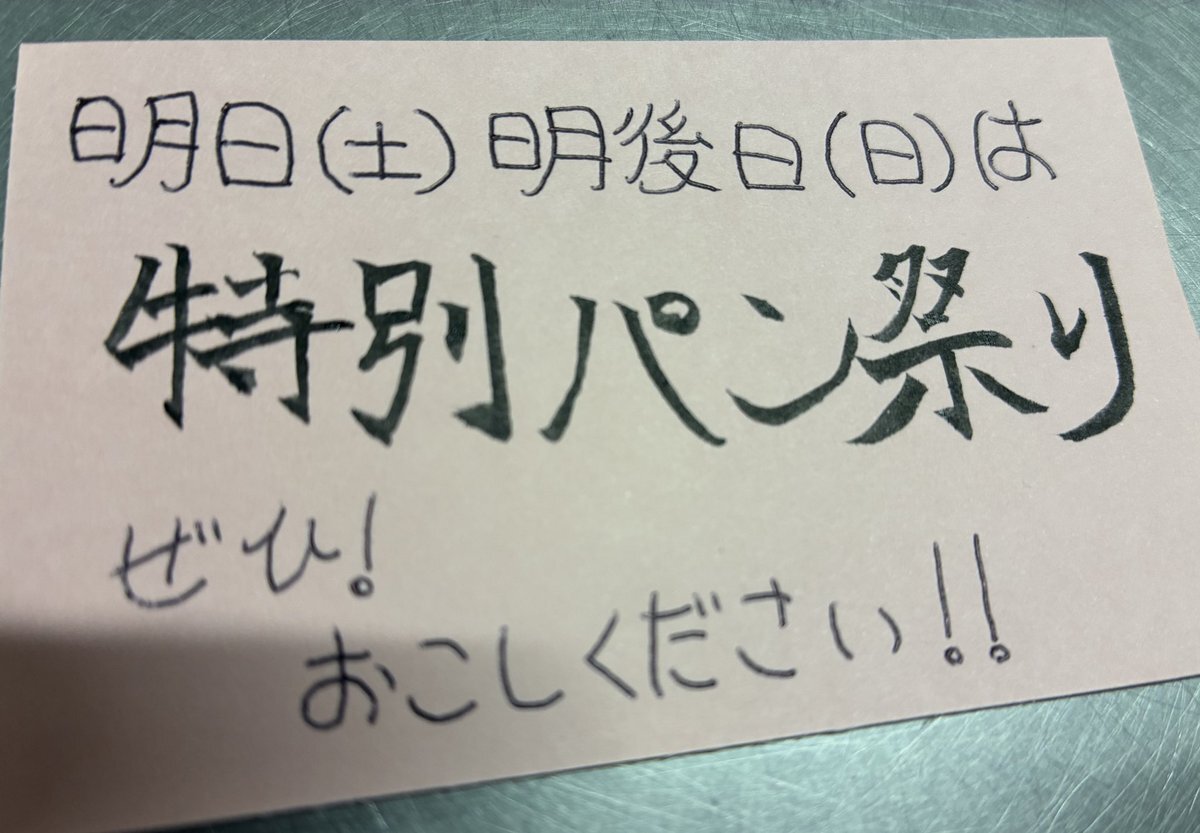 明日(土)明後日(日)は
特別パン祭り
ぜひ!
おこしください!!